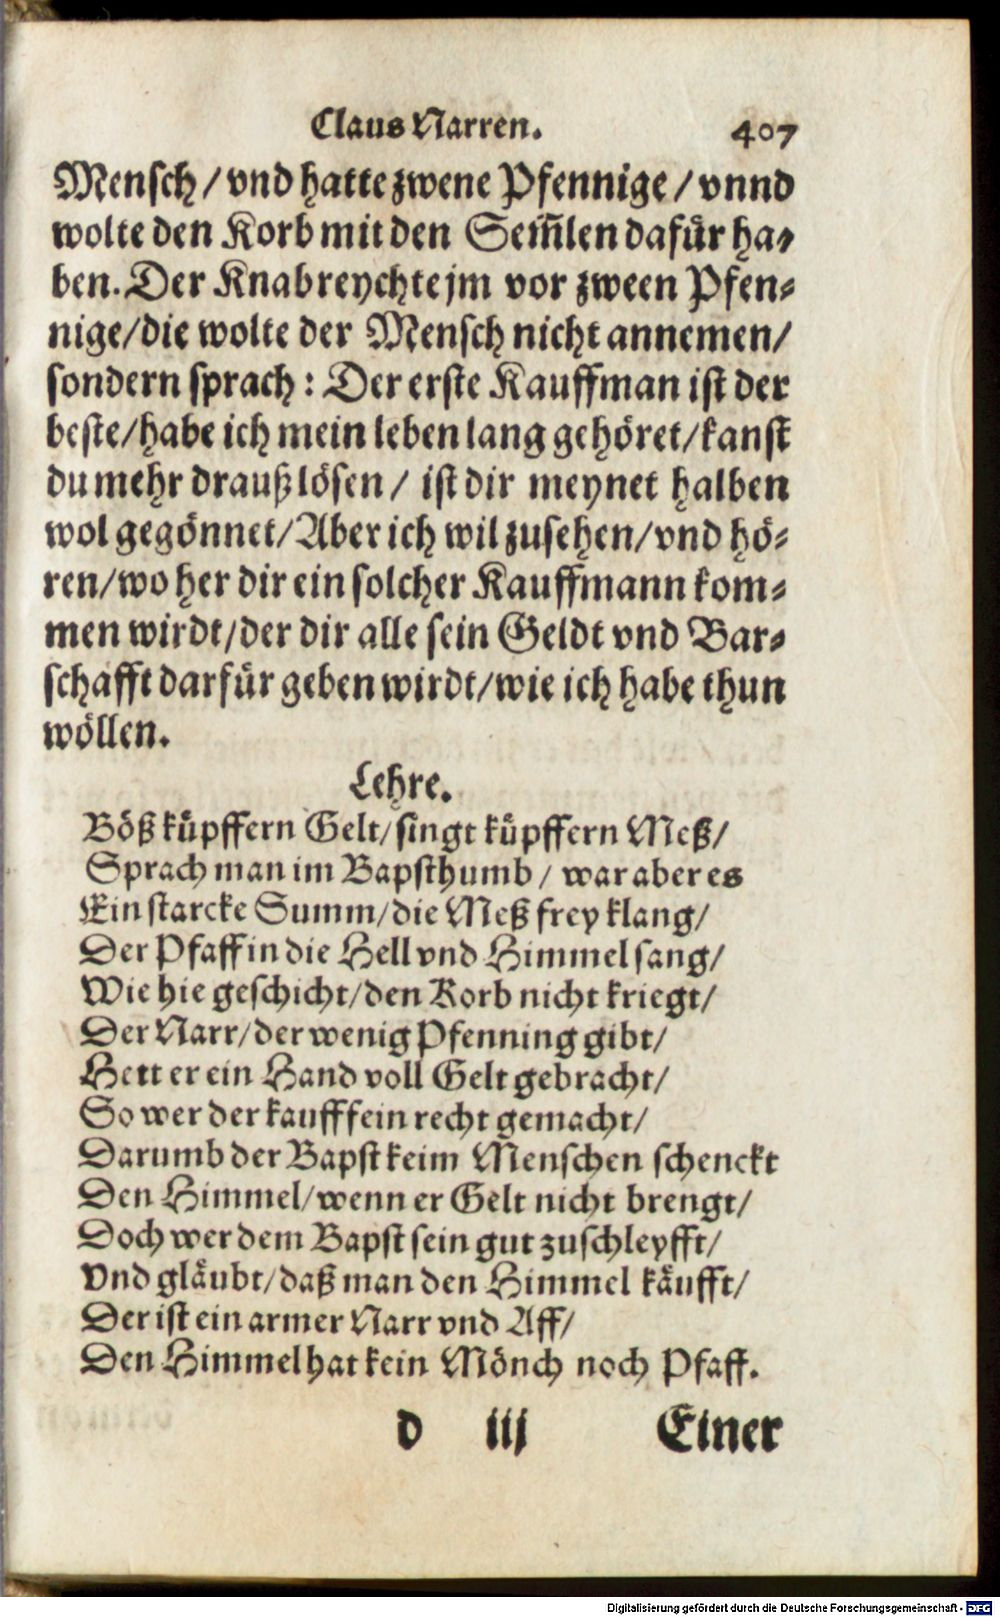 Claus Narren. 407
Mensch / vnd hatte zwene Pfennige / vnnd
wolte den Korb mit den Sem̃len dafuͤr ha-
ben. Der Knab reychte jm vor zween Pfen-
nige/die wolte der Mensch nicht annemen/
sondern sprach: Der erste Kauffman ist der
beste/habe ich mein leben lang gehoͤret/kanst
du mehr drauß loͤsen / ist dir meynet halben
wol gegoͤnnet/Aber ich wil zusehen/vnd hoͤ-
ren/wo her dir ein solcher Kauffmann kom-
men wirdt/der dir alle sein Geldt vnd Bar-
schafft darfuͤr geben wirdt/wie ich habe thun
woͤllen.
Lehre.
Boͤß kuͤpffern Gelt/singt kuͤpffern Meß/
Sprach man im Bapsthumb / war aber es
Ein starcke Summ/die Meß frey klang/
Der Pfaff in die Hell vnd Himmel sang/
Wie hie geschicht/den Korb nicht kriegt/
Der Narr/der wenig Pfenning gibt/
Hett er ein Hand voll Gelt gebracht/
So wer der kauff fein recht gemacht/
Darumb der Bapst keim Menschen schenckt
Den Himmel/wenn er Gelt nicht brengt/
Doch wer dem Bapst sein gut zuschleyfft/
Vnd glaͤubt/daß man den Himmel kaͤufft/
Der ist ein armer Narr vnd Aff/
Den Himmel hat kein Moͤnch noch Pfaff.
d iij Einer
Digitalisierung gefördert durch die Deutsche Forschungsgemeinschaft - DFG